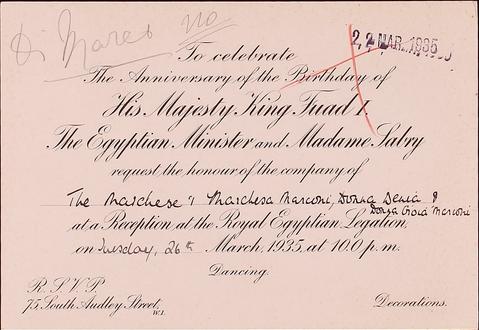 no
22 MAR. 1935
To celebrate
The Anniversary of the Birthday of
His Majesty King Fuad I.
The Egyptian Minister and Madame Sabry
request the honour of the company of
The Marchese & Marchesa Marconi, Donna Degna &
Donna Gioia Marconi
at a Reception at the Royal Egyptian Legation,
on Tuesday, 26th March, 1935, at 10.0 p.m.
Dancing.
R.S.V.P.
75, South Audley Street, W.1.
Decorations.